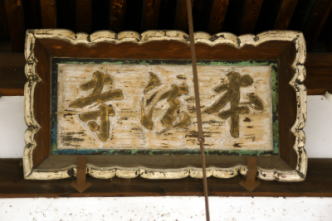 本法寺